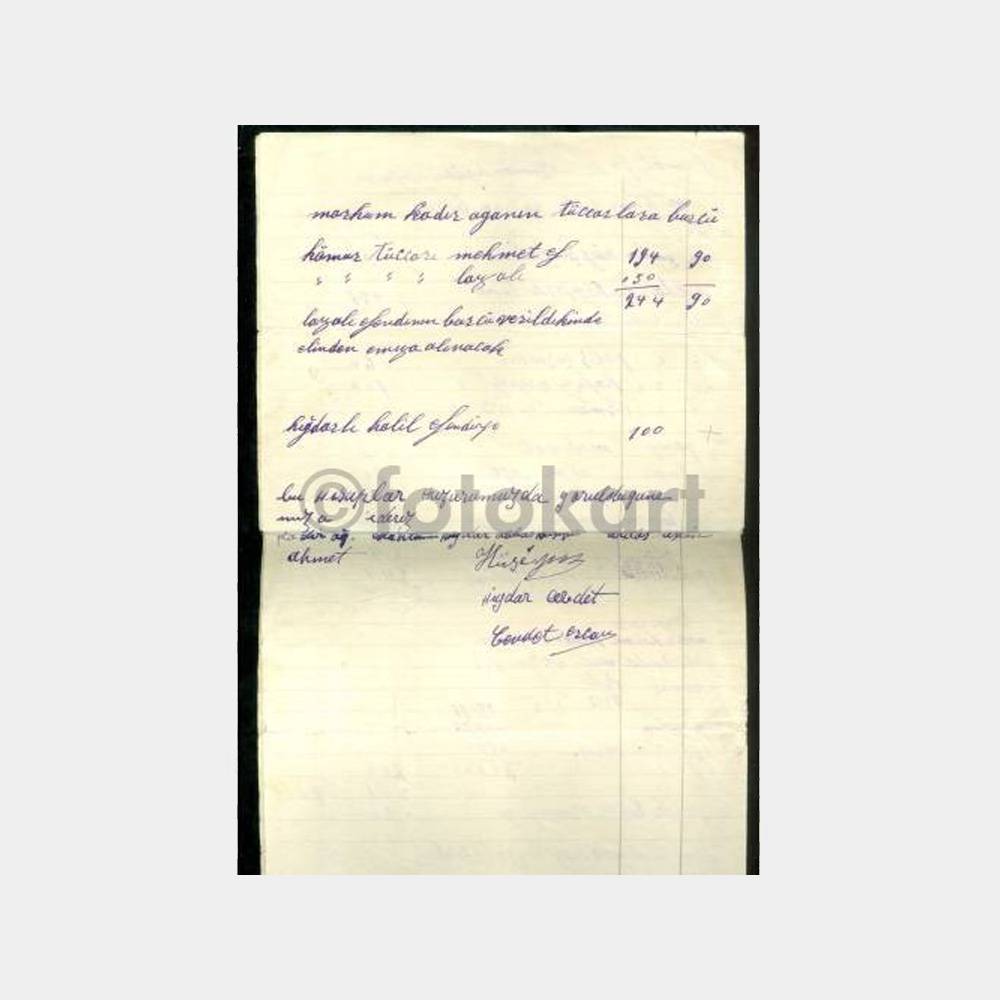 marhum kadir aganın tüccarlara burcu
kömur tüccarı mehmet ef 194 90
" " " " laz ali 050
244 90
laz ali efendinin burcu verildikinde
elinden emza alınacak
halil efendiye 100 +
bu hesaplar huzurumuzda goruldugune
imza ideriz
ahmet Hüseyin
cevdet
Cevdet
©fotokart